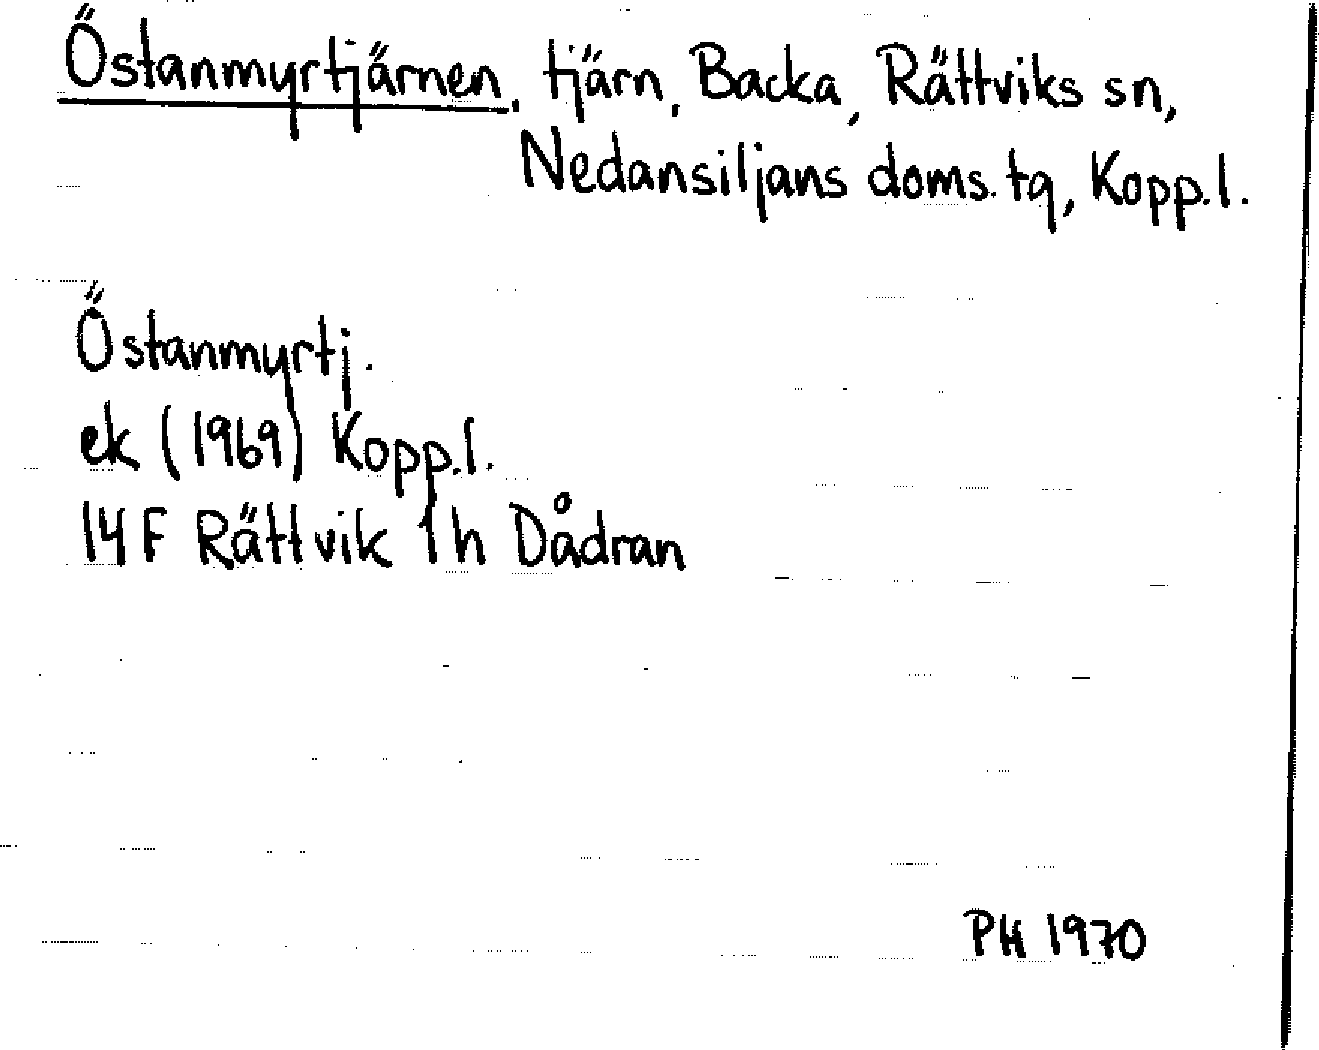 Östanmyrtjärnen, tjärn, Backa, Rättviks sn,
Nedansiljans doms. tg, Kopp.l.
Östanmyrtj.
ek (1969) Kopp.l.
14 F Rättvik 1 h Dådran
PH 1970